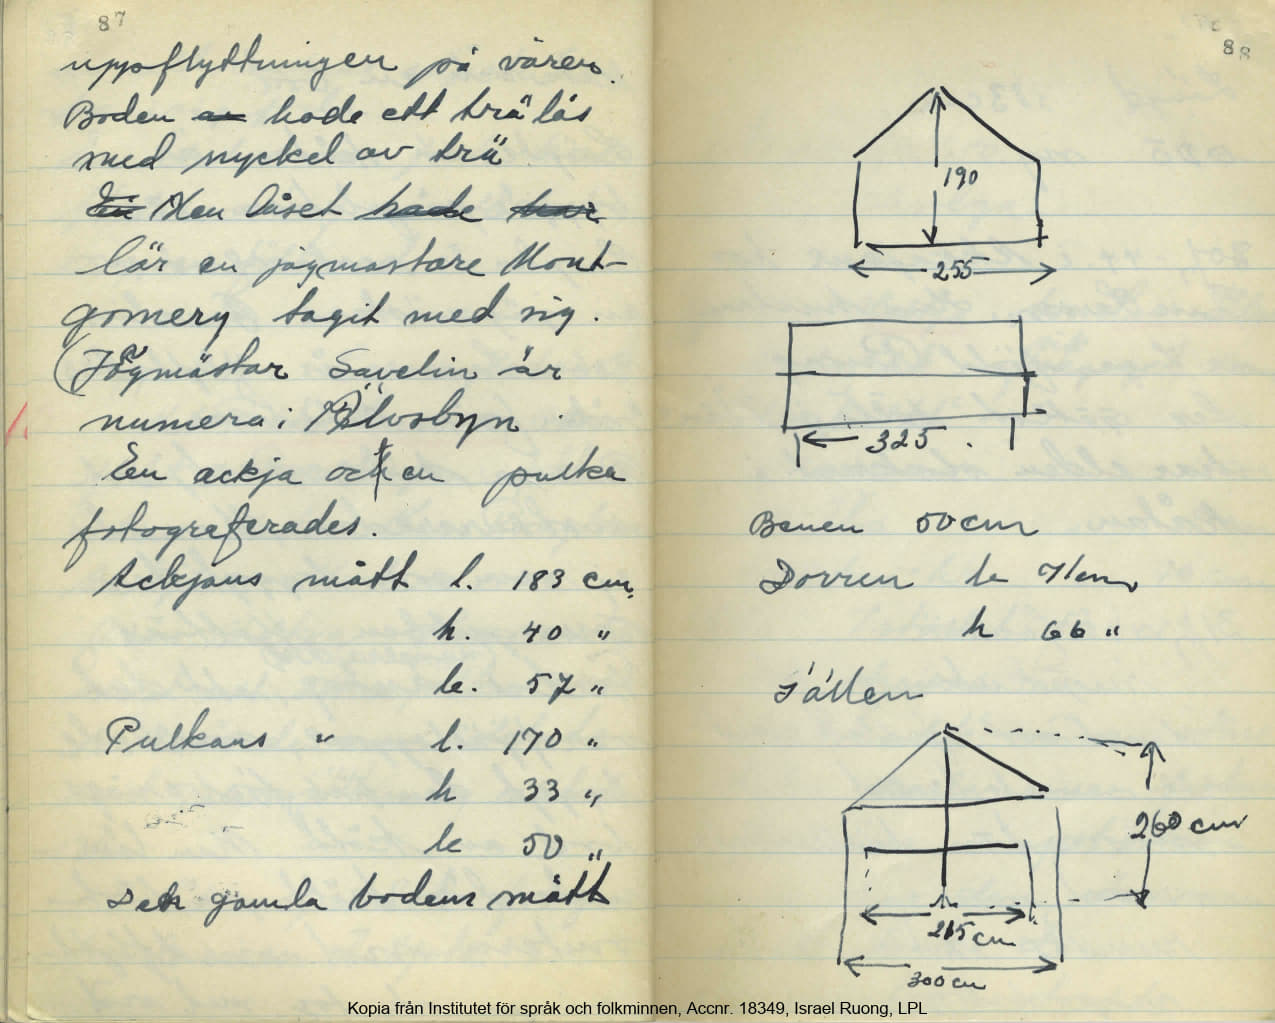 87
uppflyttningen på våren.
Boden hade ett trälås
med nyckel av trä
Men låset
lär en jägmästare Mont-
gomery tagit med sig.
(Jägmästar Savelin är
numera i Älvsbyn.
En ackja och en pulka
fotograferades.
Ackjans mått l. 183 cm.
h. 40 "
b. 57 "
Pulkans " l. 170 "
h 33 "
b 50 "
Den gamla bodens mått
88
190
255
325
Benen 50 cm
Dörren b 71 cm
h 66 "
Fällen
260 cm
215 cm
300 cm
Kopia från Institutet för språk och folkminnen, Accnr. 18349, Israel Ruong, LPL